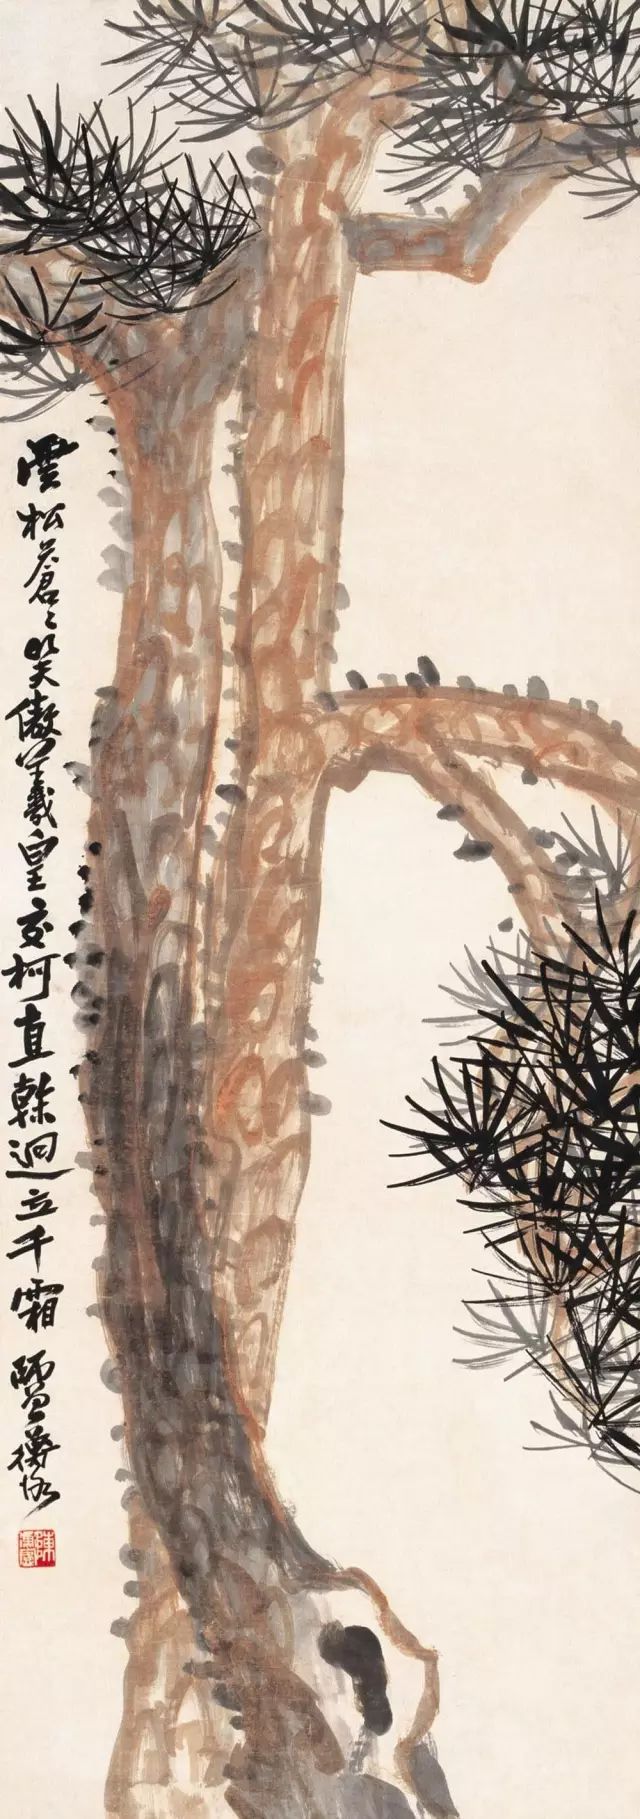 雲松蒼〻笑傲羲皇交柯直榦迥立千霜 師曾衡恪